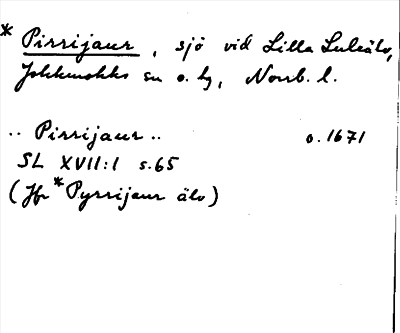 * Pirrijaur, sjö vid Lilla Luleälv,
Jokkmokks sn o. hg, Norrb. l.
.. Pirrijaur .. o. 1671
SL XVII:1 s.65
(Jfr *Pyrrijaur älv)